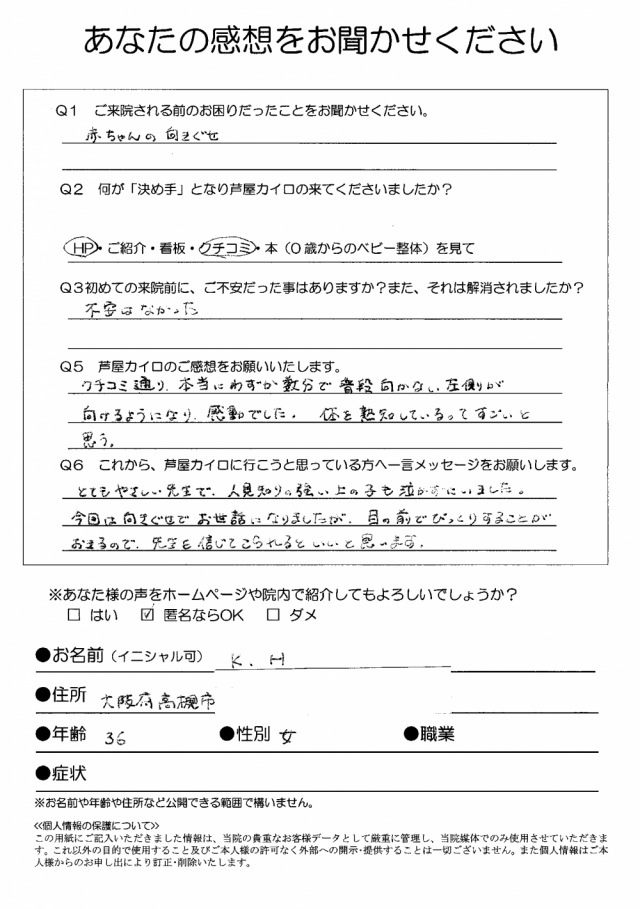 あなたの感想をお聞かせください
Q1 ご来院される前のお困りだったことをお聞かせください。
赤ちゃんの向きぐせ
Q2 何が「決め手」となり芦屋カイロの来てくださいましたか？
HP・ご紹介・看板・クチコミ・本（0歳からのベビー整体）を見て
Q3初めての来院前に、ご不安だった事はありますか？また、それは解消されましたか？
不安はなかった
Q5 芦屋カイロのご感想をお願いいたします。
クチコミ通り、本当にわずか数分で普段向かない左側りが
向けるようになり、感動でした。体を熟知しているってすごいと
思う。
Q6 これから、芦屋カイロに行こうと思っている方へ一言メッセージをお願いします。
とてもやさしい先生で、人見知りの強い上の子も泣かずにいました。
今回は向きぐせでお世話になりましたが、目の前でびっくりすることが
おきるので、先生を信じてこられるといいと思います。
※あなた様の声をホームページや院内で紹介してもよろしいでしょうか？
□ はい ☑ 匿名ならOK □ ダメ
●お名前（イニシャル可） K.H
●住所 大阪府高槻市
●年齢 36 ●性別 女 ●職業
●症状
※お名前や年齢や住所など公開できる範囲で構いません。
≪個人情報の保護について≫
この用紙にご記入いただきました情報は、当院の貴重なお客様データとして厳重に管理し、当院媒体でのみ使用させていただきま
す。これ以外の目的で使用すること及びご本人様の許可なく外部への開示・提供することは一切ございません。また個人情報はご本
人様からのお申し出により訂正・削除いたします。